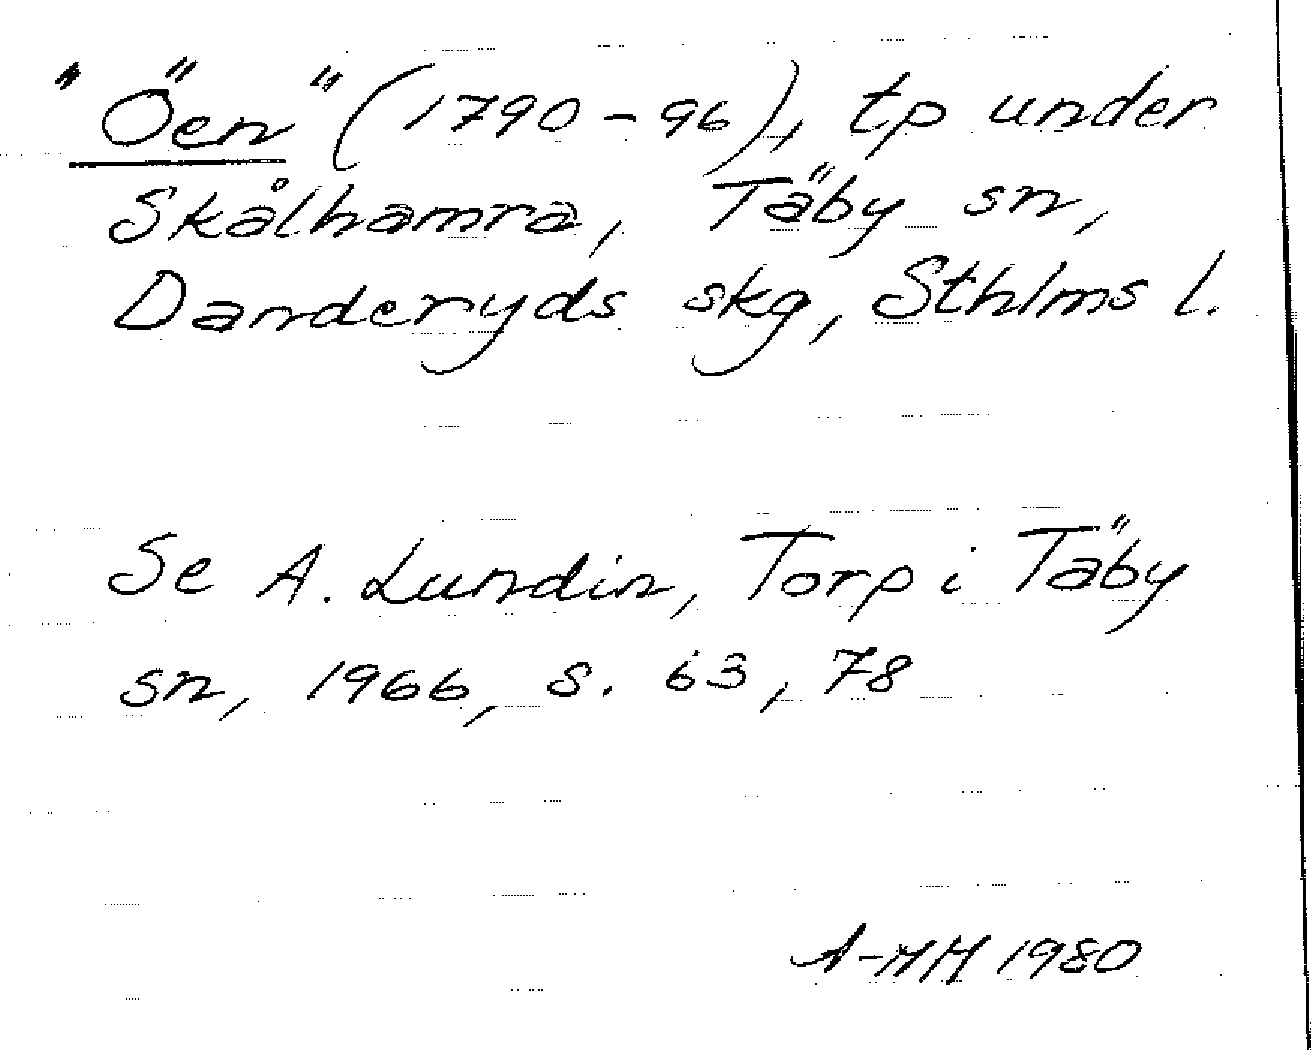 "Öen" (1790-96), tp under
Skålhamra, Täby sn,
Danderyds skg, Sthlms l.
Se A. Lundin, Torp i Täby
sn, 1966, s. 63, 78
A-MM 1980